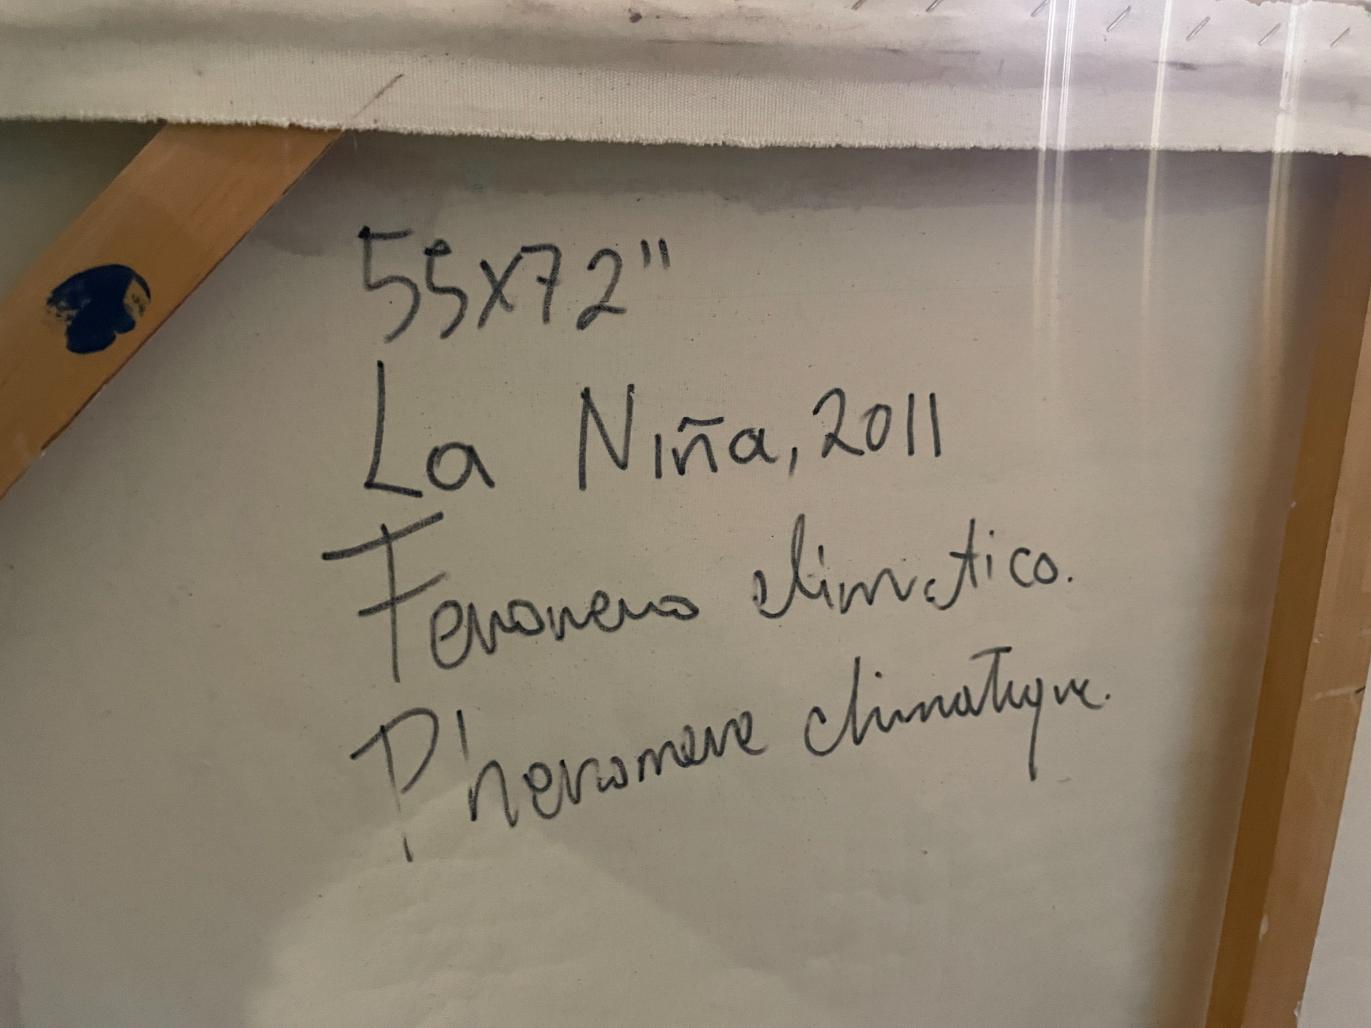 55x72"
La Niña, 2011
Fenomeno climatico.
Phenomene climatique.